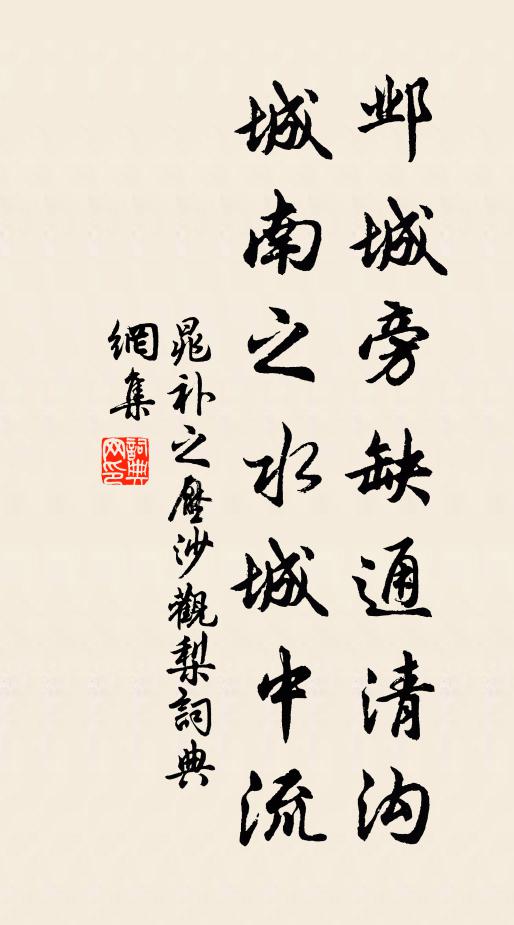 邺城旁缺通清沟
城南之水城中流
晁补之壓沙觀梨詞典
網集
詞典网印